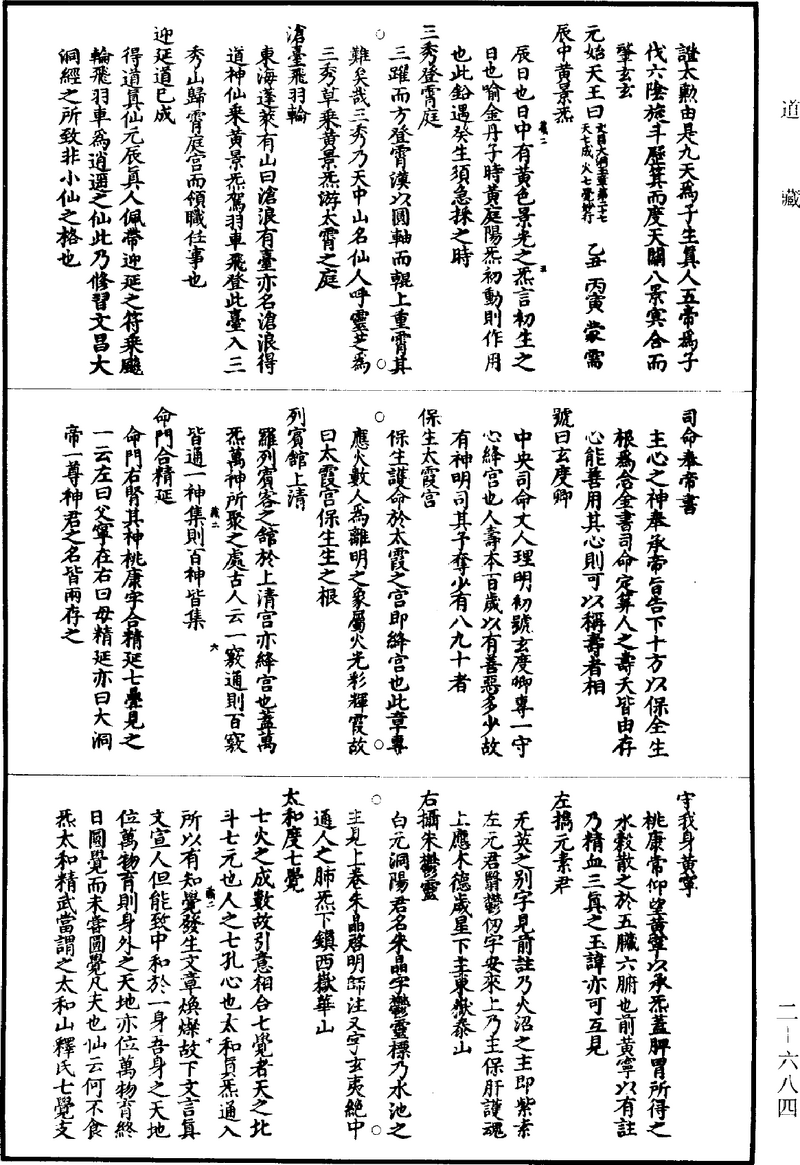 道藏
證太勲由是九天爲子生眞人五帝爲子
伐六陰旋斗歷箕而度天關八景冥合而
肇玄玄
元始天王曰 天七成火七覺妙行 乙丑 丙寅 蒙 需
辰中黄景炁
辰日也日中有黄色景光之炁言初生之
日也喻金丹子時黄庭陽炁初動則作用
也此鉛遇癸生須急採之時
三秀登霄庭
三躍而方登霄漢以圓軸而輥上重霄其
難矣哉三秀乃天中山名仙人呼靈芝爲
三秀草乘黄景炁游太霄之庭
滄臺飛羽輪
東海蓬萊有山曰滄浪有臺亦名滄浪得
道神仙乘黄景炁駕羽車飛登此臺入三
秀山歸霄庭宫而領職任事也
迎延道巳成
得道眞仙元辰眞人佩帶迎延之符乘飈
輪飛羽車爲逍遥之仙此乃修習文昌大
洞經之所致非小仙之格也
司命奉帝書
主心之神奉承帝旨告下十方以保全生
根爲念金書司命定筭人之壽夭皆由存
心能善用其心則可以稱壽者相
號曰玄度卿
中央司命丈人理明初號玄度卿專一守
心絳宫也人壽本百歲以有善惡多少故
有神明司其予奪少有八九十者
保生太霞宫
保生護命於太霞之宫即絳宫也此章專
應火數人爲離明之象屬火光彩輝霞故
曰太霞宫保生生之根
列賓館上清
羅列賓客之館於上清宫亦絳宫也蓋萬
炁萬神所聚之處古人云一竅通則百竅
皆通一神集則百神皆集
六
命門合精延
命門右腎其神桃康字合精延七疊見之
一云左曰父寧在右曰母精延亦曰大洞
帝一尊神君之名皆兩存之
守我身黄寧
桃康常仰望黄寧以承炁蓋脾胃所得之
水穀散之於五臟六腑也前黄寧以有註
乃精血三眞之玉諱亦可互見
左攜元素君
无英之别字見前註乃火沼之主即紫素
左元君醫鬱仭字安來上乃主保肝護魂
上應木德歲星下主東嶽泰山
右攝朱鬱靈
白元洞陽君名朱晶字鬱靈標乃水池之
主見上卷朱晶啓明師注又字玄夷絶中
通人之肺炁下鎮西嶽華山
太和度七覺
七火之成數故引意相合七覺者天之北
斗七元也人之七孔心也太和貝炁通入
所以有知覺發生文章煥燦故下文言眞
文宣人但能致中和於一身吾身之天地
位萬物育則身外之天地亦位萬物育終
日圓覺而未嘗圓覺凡夫也仙云何不食
炁太和精武當謂之太和山釋氏七覺支
二－六八四